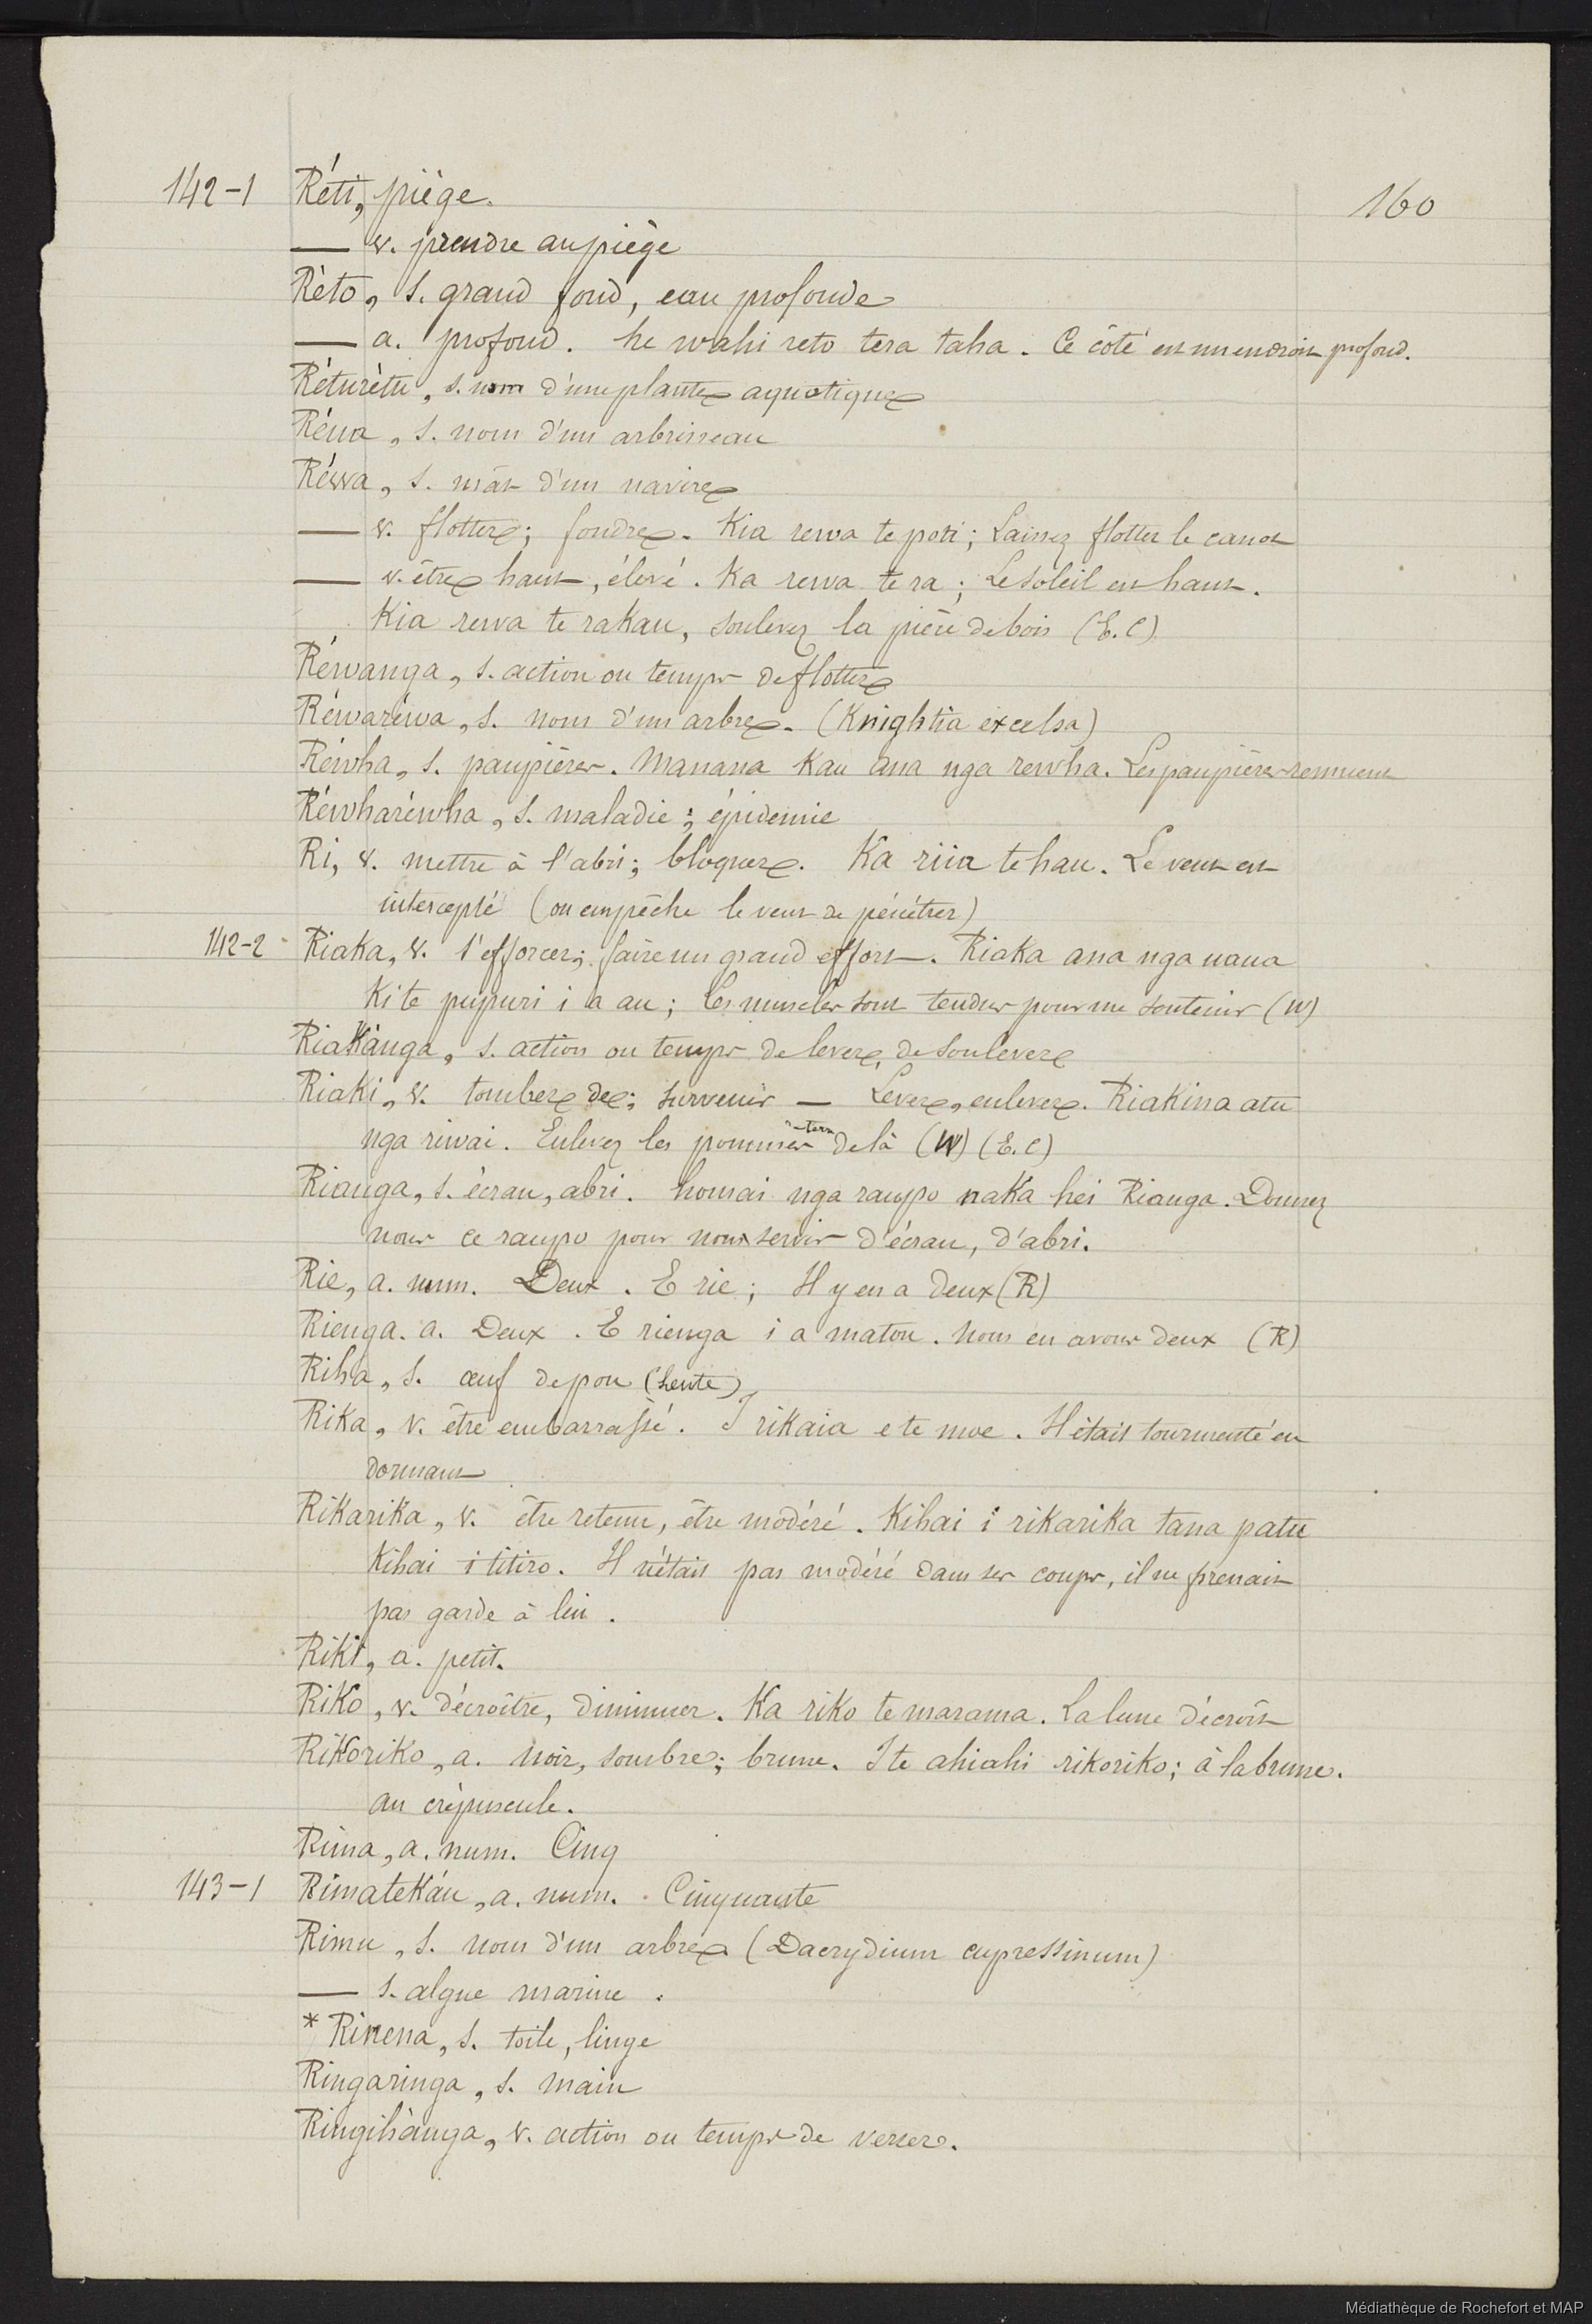 142-1 Réti, piège.
160
— v. prendre au piège
Rèto, s. grand fond, eau profonde
— a. profond. he wahi reto tera taha. Ce côté est un endroit profond.
Réturètu, s. nom d'une plante aquatique
Réua, s. nom d'un arbrisseau
Réwa, s. mât d'un navire
— v. flotter; fondre. Kia rewa te poti; Laissez flotter le canot
— v. être haut, élevé. Ka rewa te ra; Le soleil est haut.
Kia rewa te rakau, soulevez la pièce de bois (E.C)
Réwanga, s. action ou temps de flotter
Réwaréwa, s. nom d'un arbre. (Knightia excelsa)
Réwha, s. paupières. Manana kau ana nga rewha. Les paupières remuent
Réwharéwha, s. maladie; épidemie
Ri, v. mettre à l'abri; bloquer. Ka riia te hau. Le vent est
intercepté (on empêche le vent de pénétrer)
142-2 Riaka, v. s'efforcer; faire un grand effort. Riaka ana nga uaua
Ki te pupuri i a au; les muscles sont tendus pour me soutenir (W)
Riakànga, s. action ou temps de lever, de soulever
Riaki, v. tomber de; survenir — Lever, enlever. Riakina atu
nga riwai. Enlevez les pommes de là (W) (E.C)
Rianga, s. écran, abri. homai nga raupo naka hei Rianga. Donnez
nous ce raupo pour nous servir d'écran, d'abri.
Rie, a. num. Deux. E rie; Il y en a deux (R)
Rienga. a. Deux. E rienga i a matou. Nous en avons deux (R)
Riha, s. œuf de pou (lente)
Rika, v. être embarrassé. I rikaia e te moe. Il était tourmenté en
dormant
Rikarika, v. être retenu, être modéré. Kihai i rikarika tana patu
Kihai i titiro. Il n'était pas modéré dans ses coups, il ne prenait
pas garde à lui.
Riki, a. petit.
Riko, v. décroître, diminuer. Ka riko te marama. La lune décroît
Rikoriko, a. noir, sombre; brune. I te ahiahi rikoriko; à la brune.
au crépuscule.
Rima, a. num. Cinq
143-1 Rimatekáu, a. num. Cinquante
Rimu, s. nom d'un arbre (Dacrydium cupressinum)
— s. algue marine.
* Rinena, s. toile, linge
Ringaringa, s. main
Ringihànga, v. action ou temps de verser.
Médiathèque de Rochefort et MAP